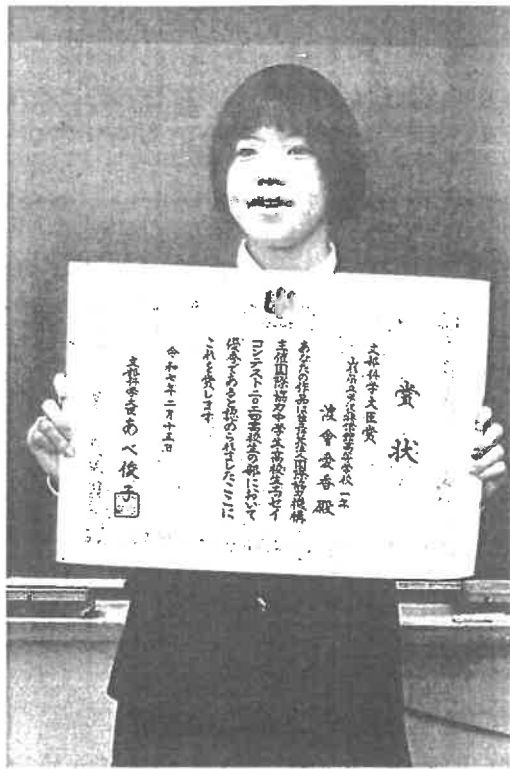 賞状
文部科学大臣賞
高等学校一年
渡會愛香殿
あなたの作品は独立行政法人国際協力機構
主催国際協力中学生高校生エッセイ
コンテスト二〇二四高校生の部において
優秀であると認められましたここに
これを賞します
令和七年二月十五日
文部科学大臣あべ俊子